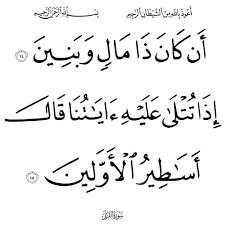 أعوذ بالله من الشيطان الرجيم بسم الله الرحمن الرحيم
أَن كَانَ ذَا مَالٍ وَبَنِينَ ١٤
إِذَا تُتْلَىٰ عَلَيْهِ ءَايَٰتُنَا قَالَ
أَسَٰطِيرُ ٱلْأَوَّلِينَ ١٥
سورة القلم